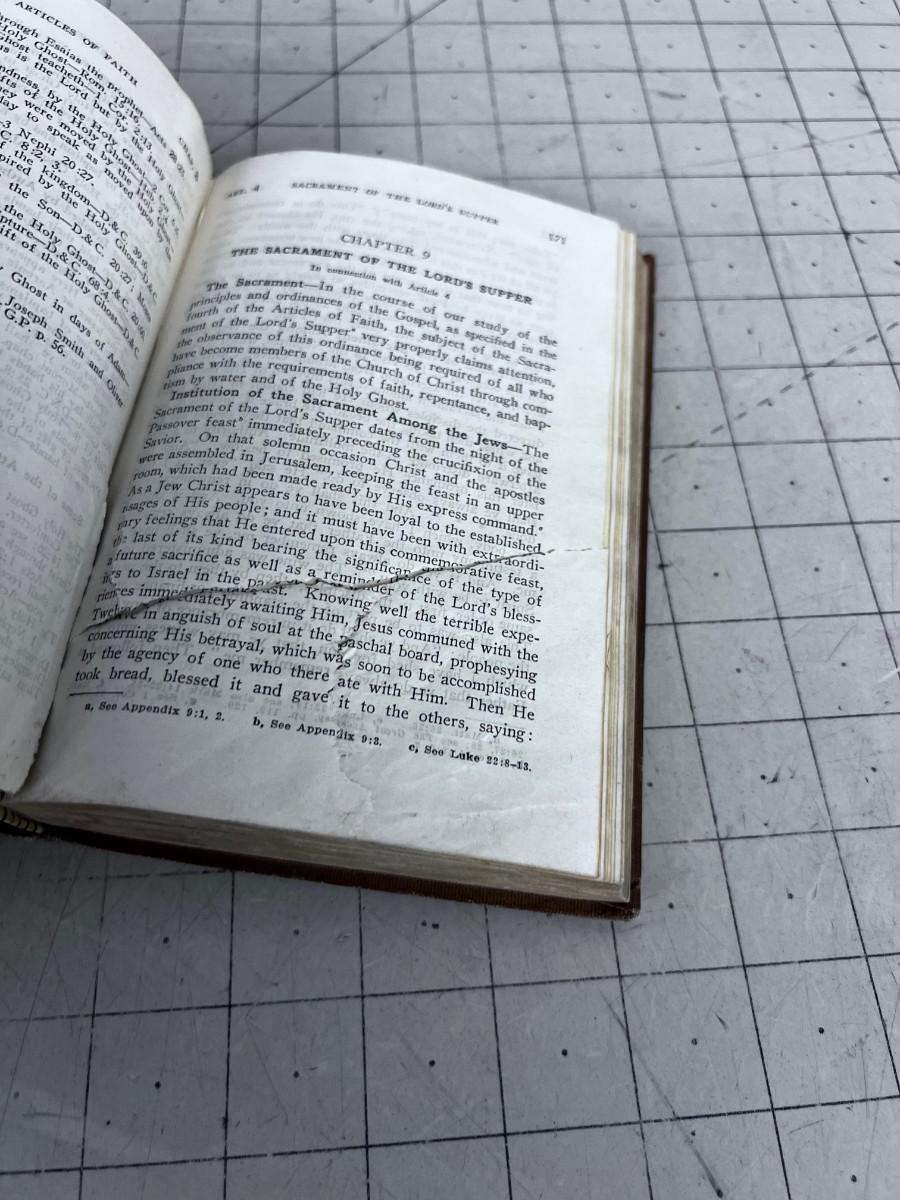 ARTICLES OF FAITH
through Esaias the prophet—Acts
Holy Ghost—Rom.
Ghost teacheth—1 Cor. 2:13.
is the Lord but by the Holy
by the Holy Ghost—2 Cor.
of the Holy Ghost—
they were moved by the Holy
to speak as moved upon by
3 Nephi 20:27.
C. 8:2, 3.
of the kingdom—D.&C.
by the Holy
the Son—D.&C. 20:27.
the Holy Ghost—D.&C.
D.&C. 68:4.
of the Holy Ghost—D.&C.
Ghost in days of Adam—
Joseph Smith and Oliver
G.P., p. 56.
ART. 4. SACRAMENT OF THE LORD'S SUPPER 171
CHAPTER 9
THE SACRAMENT OF THE LORD'S SUPPER
In connection with Article 4
The Sacrament—In the course of our study of the
principles and ordinances of the Gospel, as specified in the
fourth of the Articles of Faith, the subject of the Sacra-
ment of the Lord's Supperᵃ very properly claims attention,
the observance of this ordinance being required of all who
have become members of the Church of Christ through com-
pliance with the requirements of faith, repentance, and bap-
tism by water and of the Holy Ghost.
Institution of the Sacrament Among the Jews—The
Sacrament of the Lord's Supper dates from the night of the
Passover feastᵇ immediately preceding the crucifixion of the
Savior. On that solemn occasion Christ and the apostles
were assembled in Jerusalem, keeping the feast in an upper
room, which had been made ready by His express command.ᶜ
As a Jew Christ appears to have been loyal to the established
usages of His people; and it must have been with extraordi-
nary feelings that He entered upon this commemorative feast,
the last of its kind bearing the significance of the type of
a future sacrifice as well as a reminder of the Lord's bless-
ings to Israel in the past. Knowing well the terrible expe-
riences immediately awaiting Him, Jesus communed with the
Twelve in anguish of soul at the paschal board, prophesying
concerning His betrayal, which was soon to be accomplished
by the agency of one who there ate with Him. Then He
took bread, blessed it and gave it to the others, saying:
a, See Appendix 9:1, 2. b, See Appendix 9:3. c, See Luke 22:8-13.